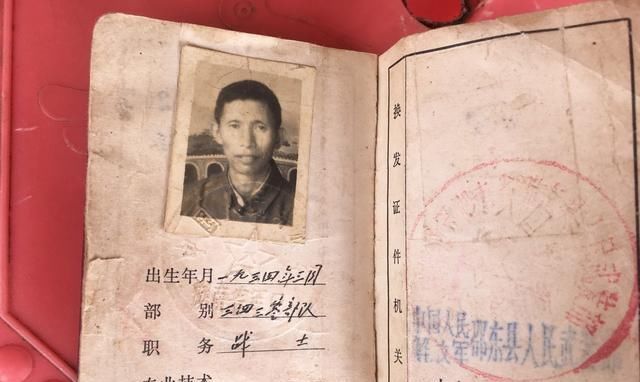 出生年月 一九三四年三月
部别 三四三零部队
职务 战士
专业技术
换发证件机关
中国人民
解放军 邵东县人民武